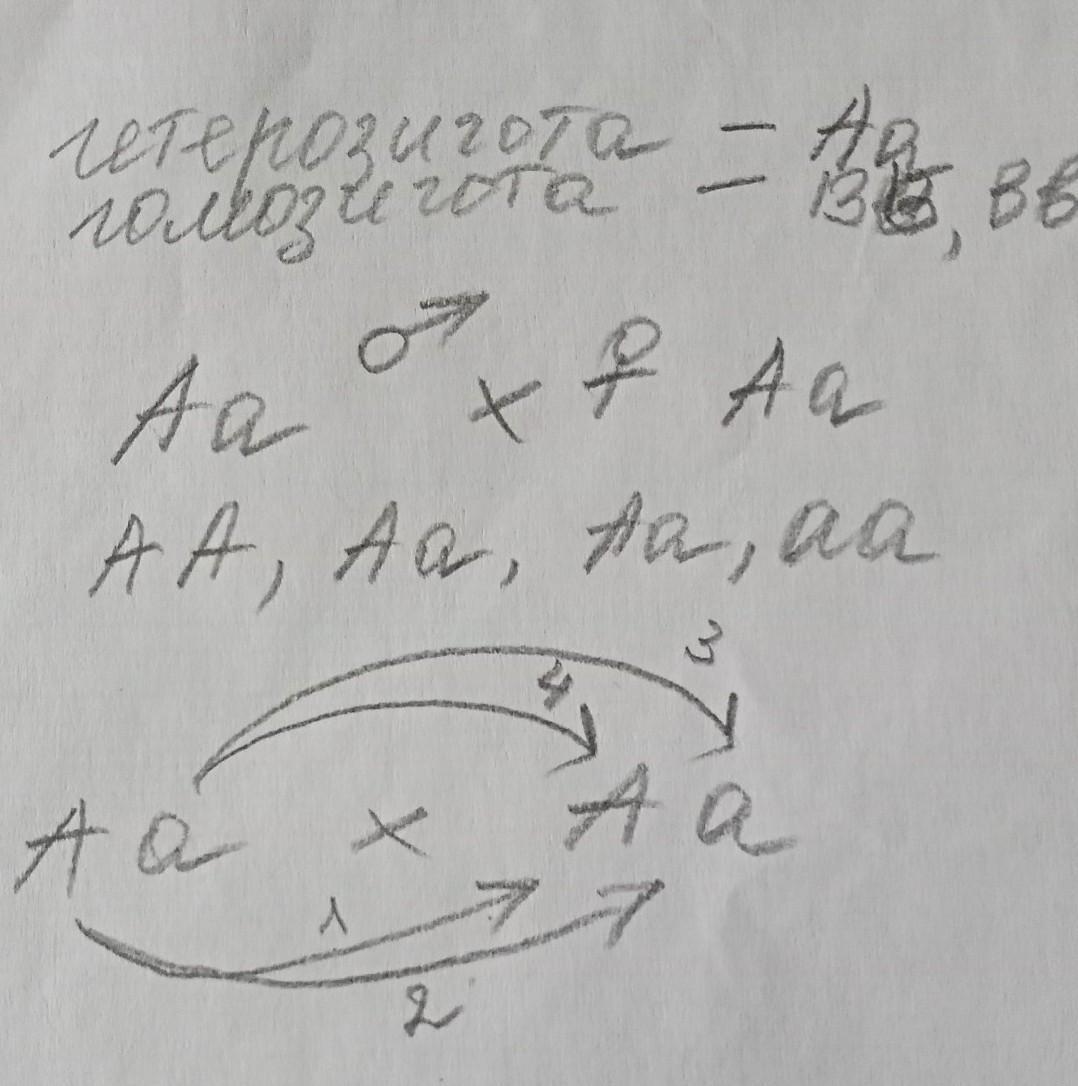 гетерозигота - Aa
гомозигота - BB, вв
Aa ♂ x ♀ Aa
AA, Aa, Aa, aa
3
4
A a x A a
1
2